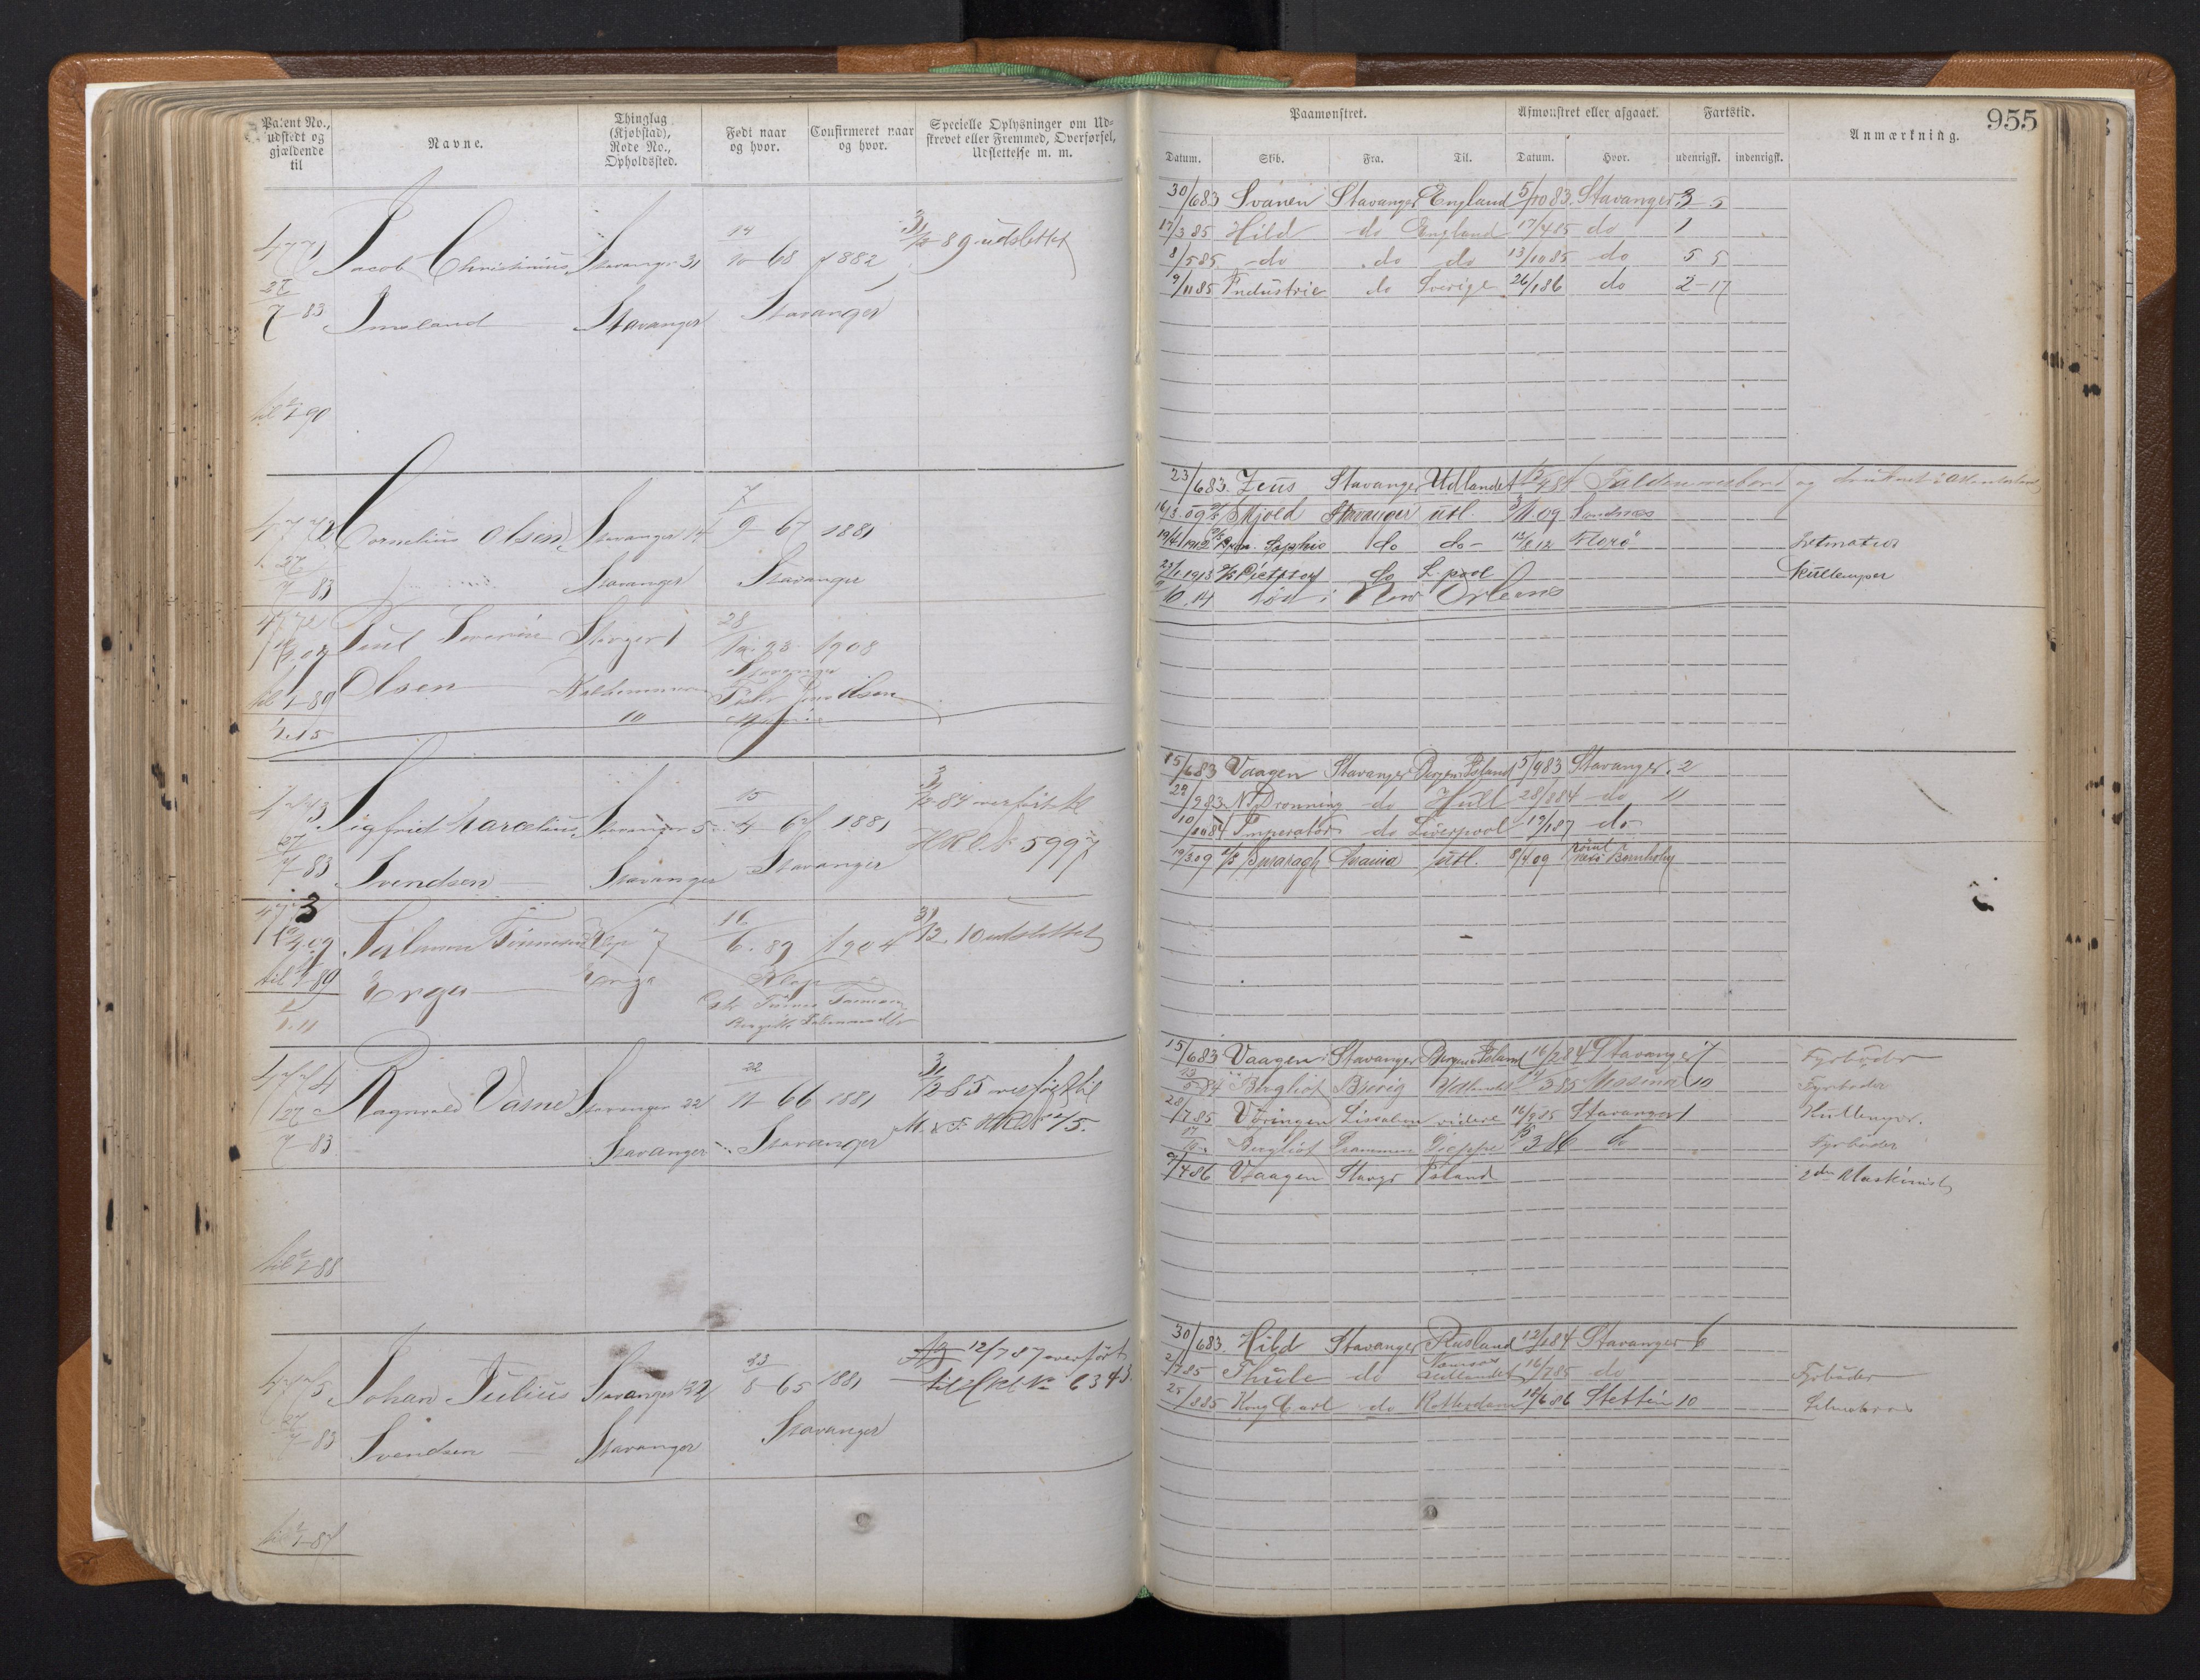 Patent No., udstedt og gjældende til
Navne.
Thinglag (Kjøbstad), Rode No., Opholdssted.
Født naar og hvor.
Confirmeret naar og hvor.
Specielle Oplysninger om Udskrevet eller Fremmed, Overførsel, Udslettelse m. m.
4771 Jacob Christinius Stavanger 31 14/10-68 1882 31/12-89 udslettet
27/7-83 Imsland Stavanger Stavanger
til 1/1-90
4772 Cornelius Olsen Stavanger 14 7/9-67 1881
27/7-83 Stavanger Stavanger
4772 Paul Severin Stvnger 1 28/12.93 1908
Stavanger
til 1/1-89 Olsen
10
1/1.15
4773 Sigfried Marcelius Stavanger 5 15/4-67 1881 31/12-84 overført til
27/7-83 Svendsen Stavanger Stavanger HRL No 5997
4773 Salamon Tønnesen Klep 7 16/6.89 1904 31/12.10 udslettet
til 1/1-89 Erga Erga Klep
1/1.11
4774 Ragnvald Vasne Stavanger 22 22/11-66 1881 31/12-85 overført til
27/7-83 Stavanger Stavanger
til 1/1-88
4775 Johan Julius Stavanger 22 23/8-65 1881 12/7 87 overført
27/7-83 Svendsen Stavanger Stavanger til HRL No 6343
til 1/1-87
955
Paamonstret.
Afmonstret eller afgaaet.
Fartstid.
Anmærkning.
Datum. Skib. Fra. Til. Datum. Hvor. udenrigsk. indenrigsk.
30/6 83 Svanen Stavanger England 5/10 83. Stavanger 3 5
17/3 85 Hild do England 17/4 85 do 1
8/5 85 do do do 13/10 85 do 5 5
9/11 85 Industrie do Sverige 26/1 86 do 2-17
23/6 83. Zeus Stavanger Udlandet Falden overbord og druknet
16/3.09 Skjold Stavanger utl. 3/11.09 Sandnæs
19/4 1912 Sophie do do 12/8 12 Florø
23/1.1913 do L.pool Kullemper
10.14 død i New Orleans
15/6 83 Vaagen Stavanger Bergen Island 5/9 83 Stavanger 2
29/9 83 N. Dronning do Hull 28/8 84 do 11
10/10 84 Imperator do Liverpool 19/1 87 do
19/3.09 utl. 8/4 09 Bornholm
15/6 83 Vaagen Stavanger Bergen Island 16/2 84 Stavanger 7 Fyrbøder
13/5 84 Bergliot Brevig Udlandet 3 85 Messina 10 Fyrbøder
28/7 85 Vøringen Lissabon videre 16/9 85 Stavanger 1 Kullemper.
17/10 Bergliot Drammen Dieppe 3 86 do Fyrbøder
9/4 86 Vaagen Stavgr Island 2den Maskinist
30/6 83. Hild Stavanger Rusland 12/1 84 Stavanger 6
2/7 85 Thule do Namsos Udlandet 16/7 85 do Fyrbøder
25/8 85 Kong Carl do Rotterdam 18/6 86 Stettin 10